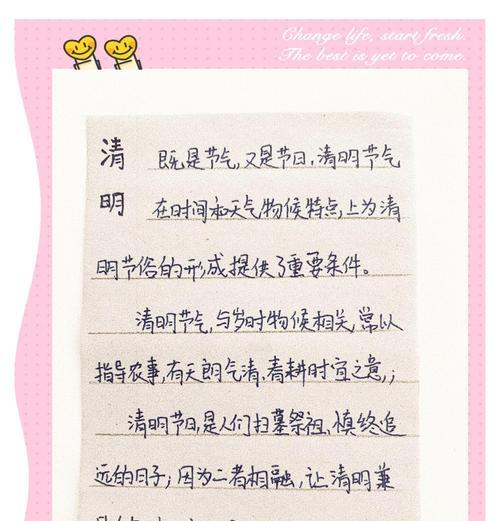 Change life, start fresh.
The best is yet to come.
清 既是节气,又是节日,清明节气
明 在时间和天气物候特点,上为清
明节俗的形成提供了重要条件。
清明节气,与岁时物候相关,常以
指导农事,有天朗气清、春耕时宜之意,;
清明节日,是人们扫墓祭祖、慎终追
远的日子;因为二者相融,让清明兼